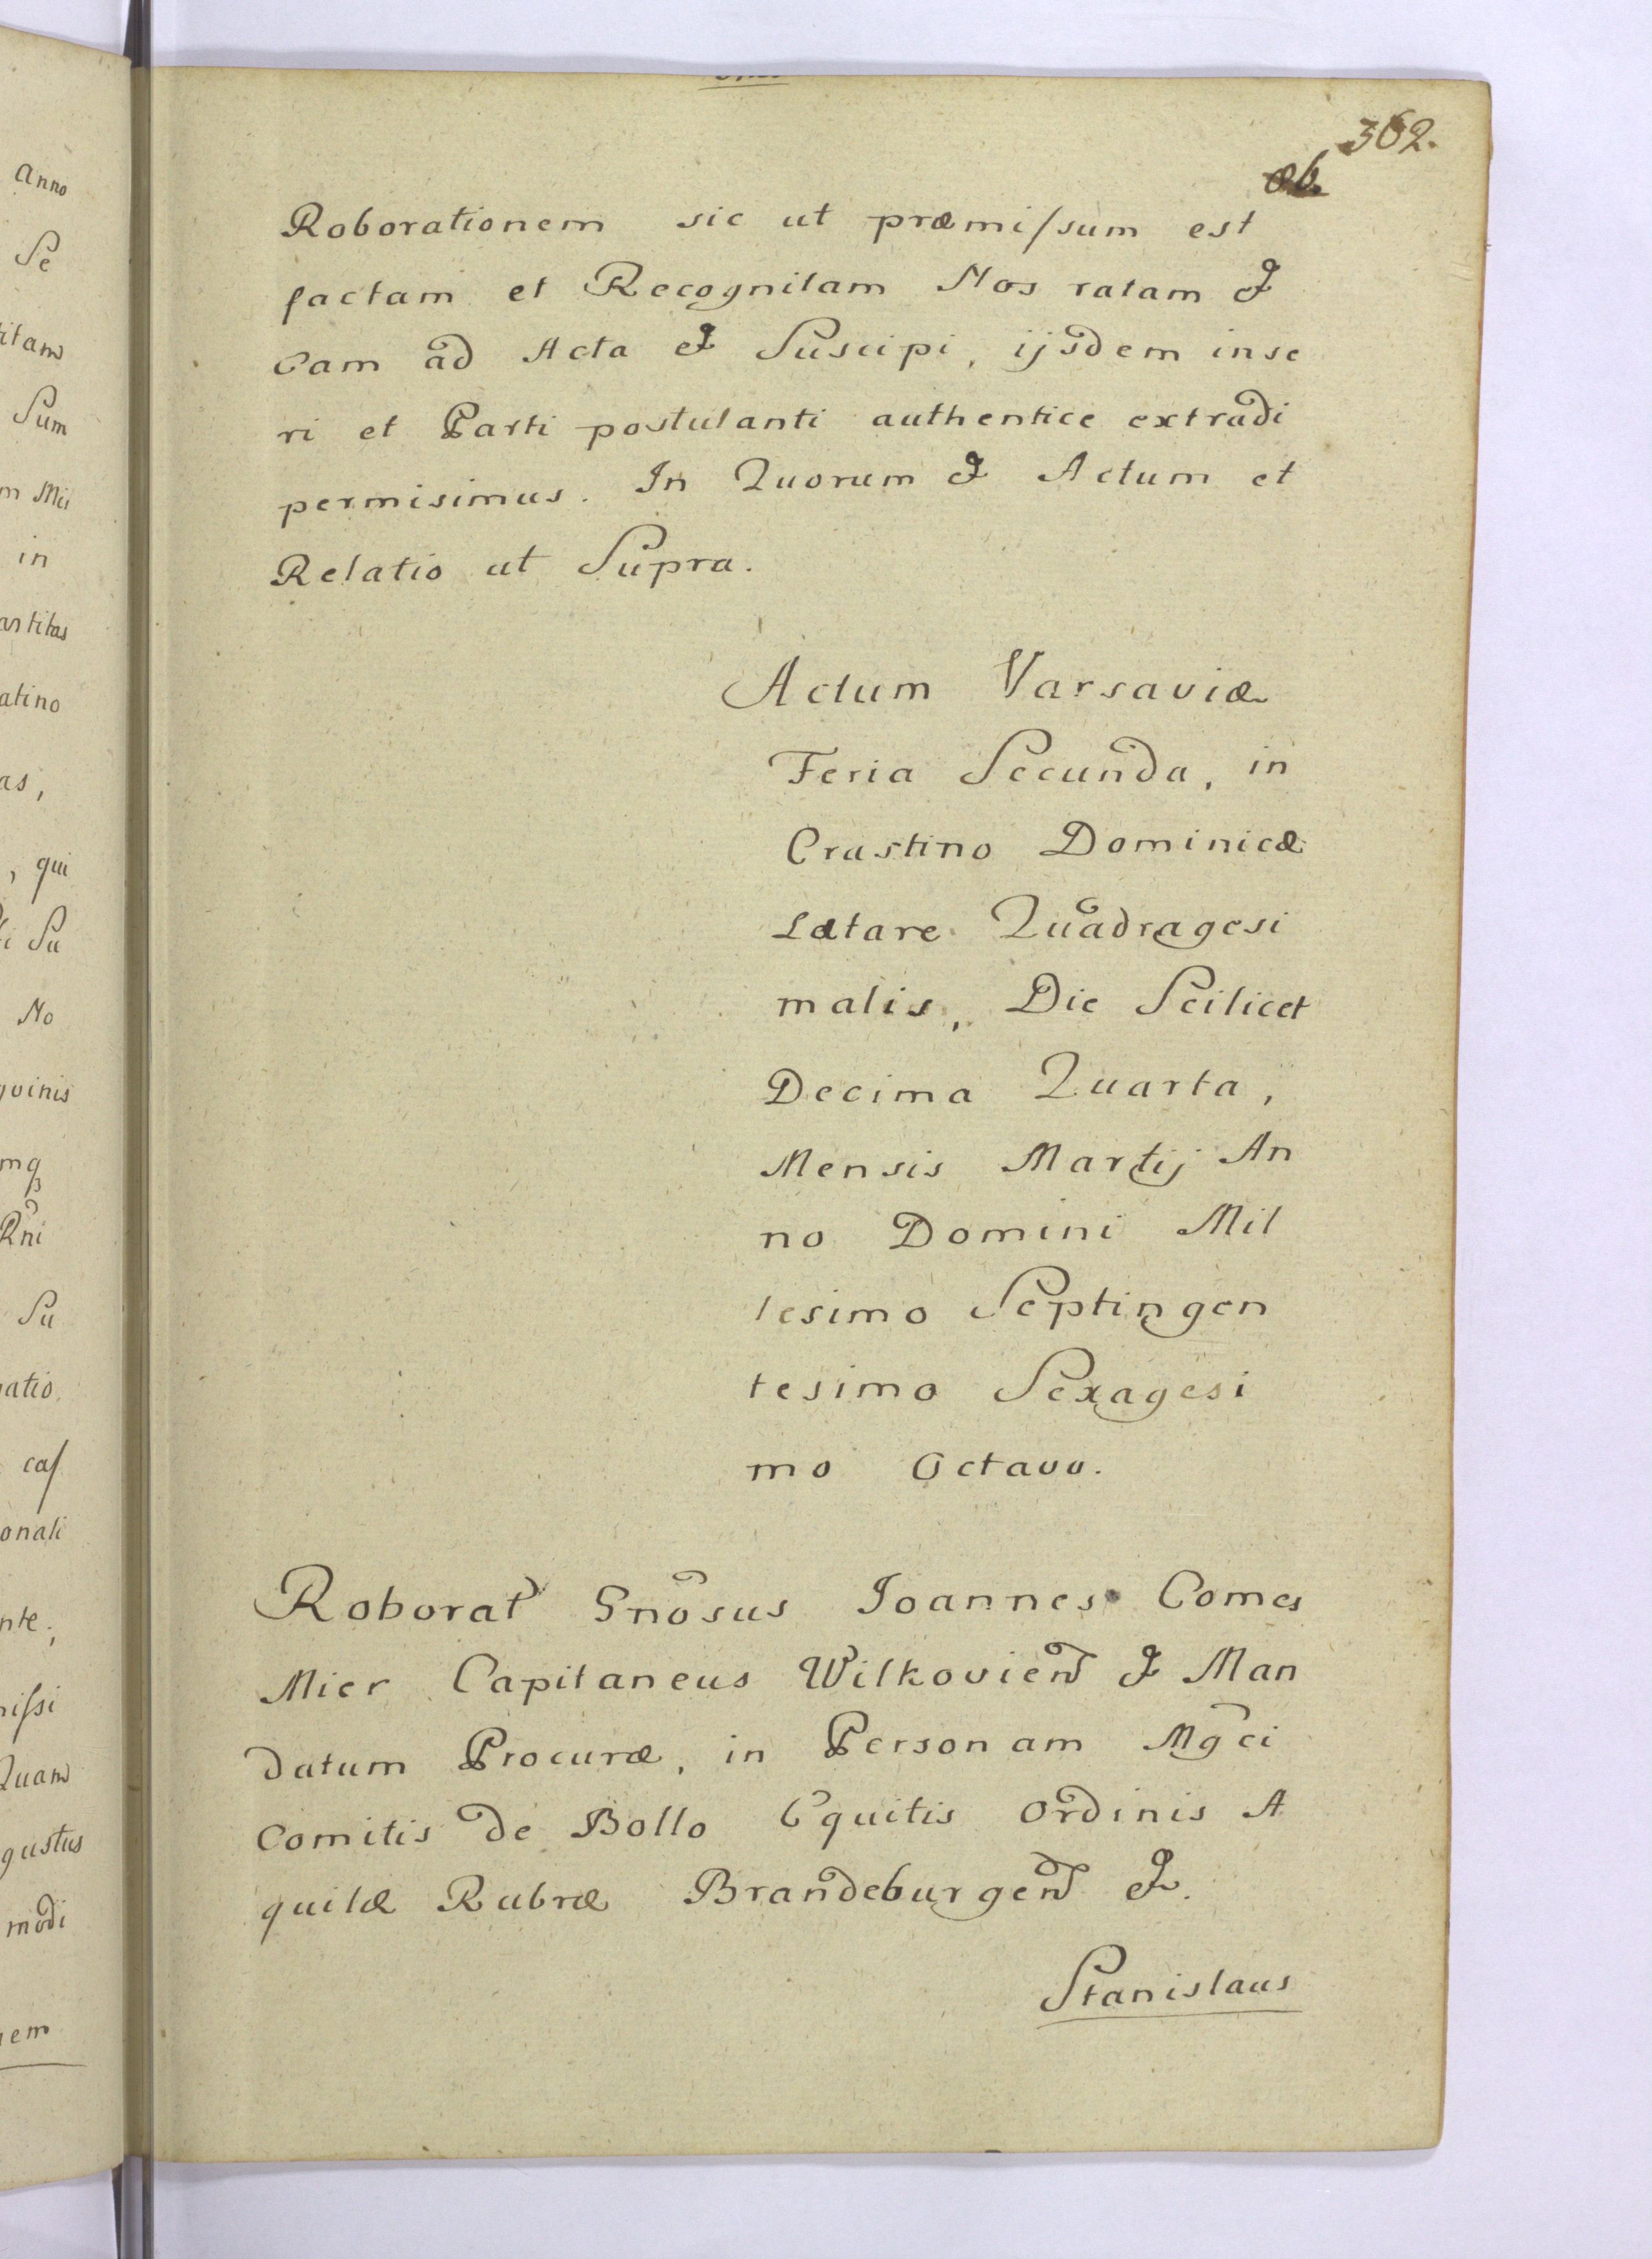 362.
Roborationem sic ut præmiſsum est
factam et Recognitam Nos ratam &
Eam ad Acta & Suscipi, ijsdem inse
ri et Parti postulanti authentice extradi
permisimus. In Quorum & Actum et
Relatio ut Supra.
Actum Varsaviæ
Feria Secunda, in
Crastino Dominicæ
Lætare Quadragesi
malis, Die Scilicet
Decima Quarta,
Mensis Martij An
no Domini Mil
lesimo Septingen
tesimo Sexagesi
mo Octavo.
Roborat Gnosus Ioannes Comes
Mier Capitaneus Wilkovien & Man
datum Procuræ, in Personam Mgci
Comitis de Bollo Equitis Ordinis A
quilæ Rubræ Brandeburgen &.
Stanislaus